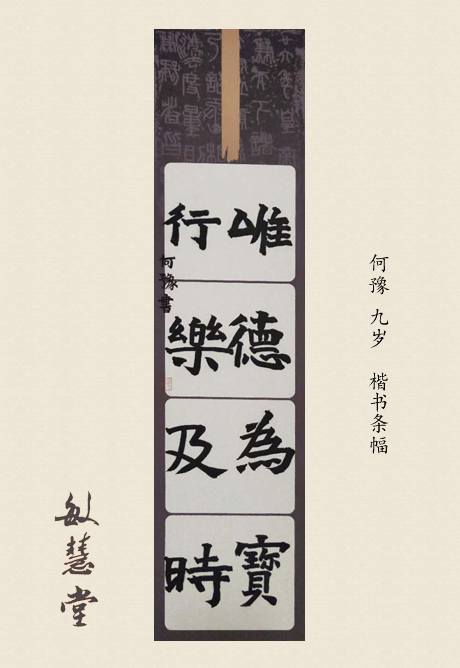 何豫 九岁 楷书条幅
唯德為寶
行樂及時
何豫書
敏慧堂